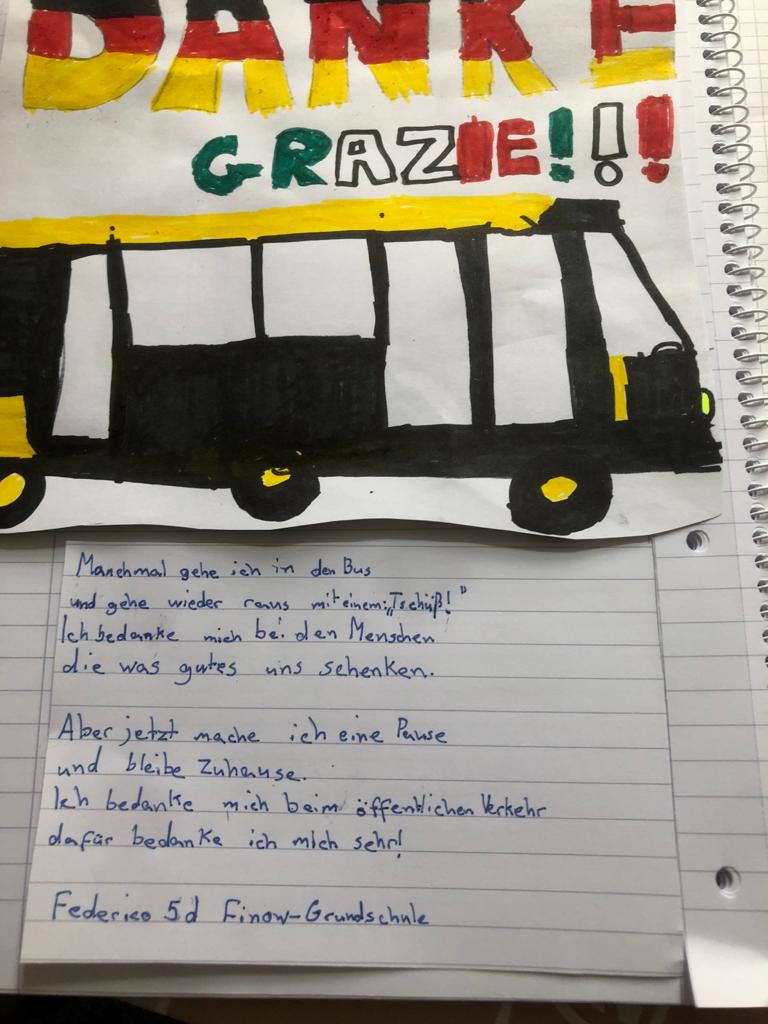 DANKE
GRAZIE!!!
Manchmal gehe ich in den Bus
und gehe wieder raus mit einem: „Tschüß!"
Ich bedanke mich bei den Menschen
die was gutes uns schenken.
Aber jetzt mache ich eine Pause
und bleibe Zuhause.
Ich bedanke mich beim öffentlichen Verkehr
dafür bedanke ich mich sehr!
Federico 5d Finow-Grundschule